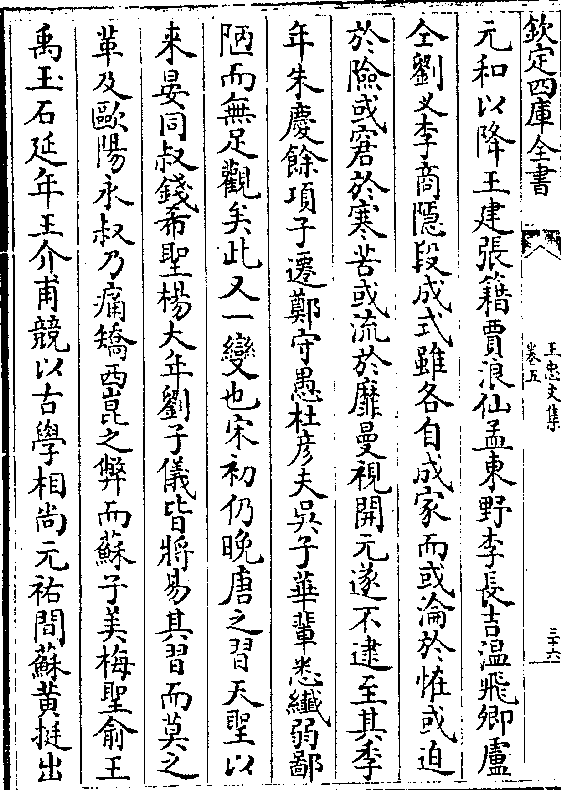 欽定四庫全書
王忠文集
卷五
三十六
元和以降王建張籍賈浪仙孟東野李長吉温飛卿盧
仝劉乂李商隱段成式雖各自成家而或淪於怪或迫
於險或窘於寒苦或流於靡曼視開元遂不逮至其季
年朱慶餘項子遷鄭守愚杜彦夫吳子華輩悉纖弱鄙
陋而無足觀矣此又一變也宋初仍晚唐之習天聖以
来晏同叔錢希聖楊大年劉子儀皆將易其習而莫之
革及歐陽永叔乃痛矯西崑之弊而蘇子美梅聖俞王
禹玉石延年王介甫競以古學相尚元祐間蘇黄挺出